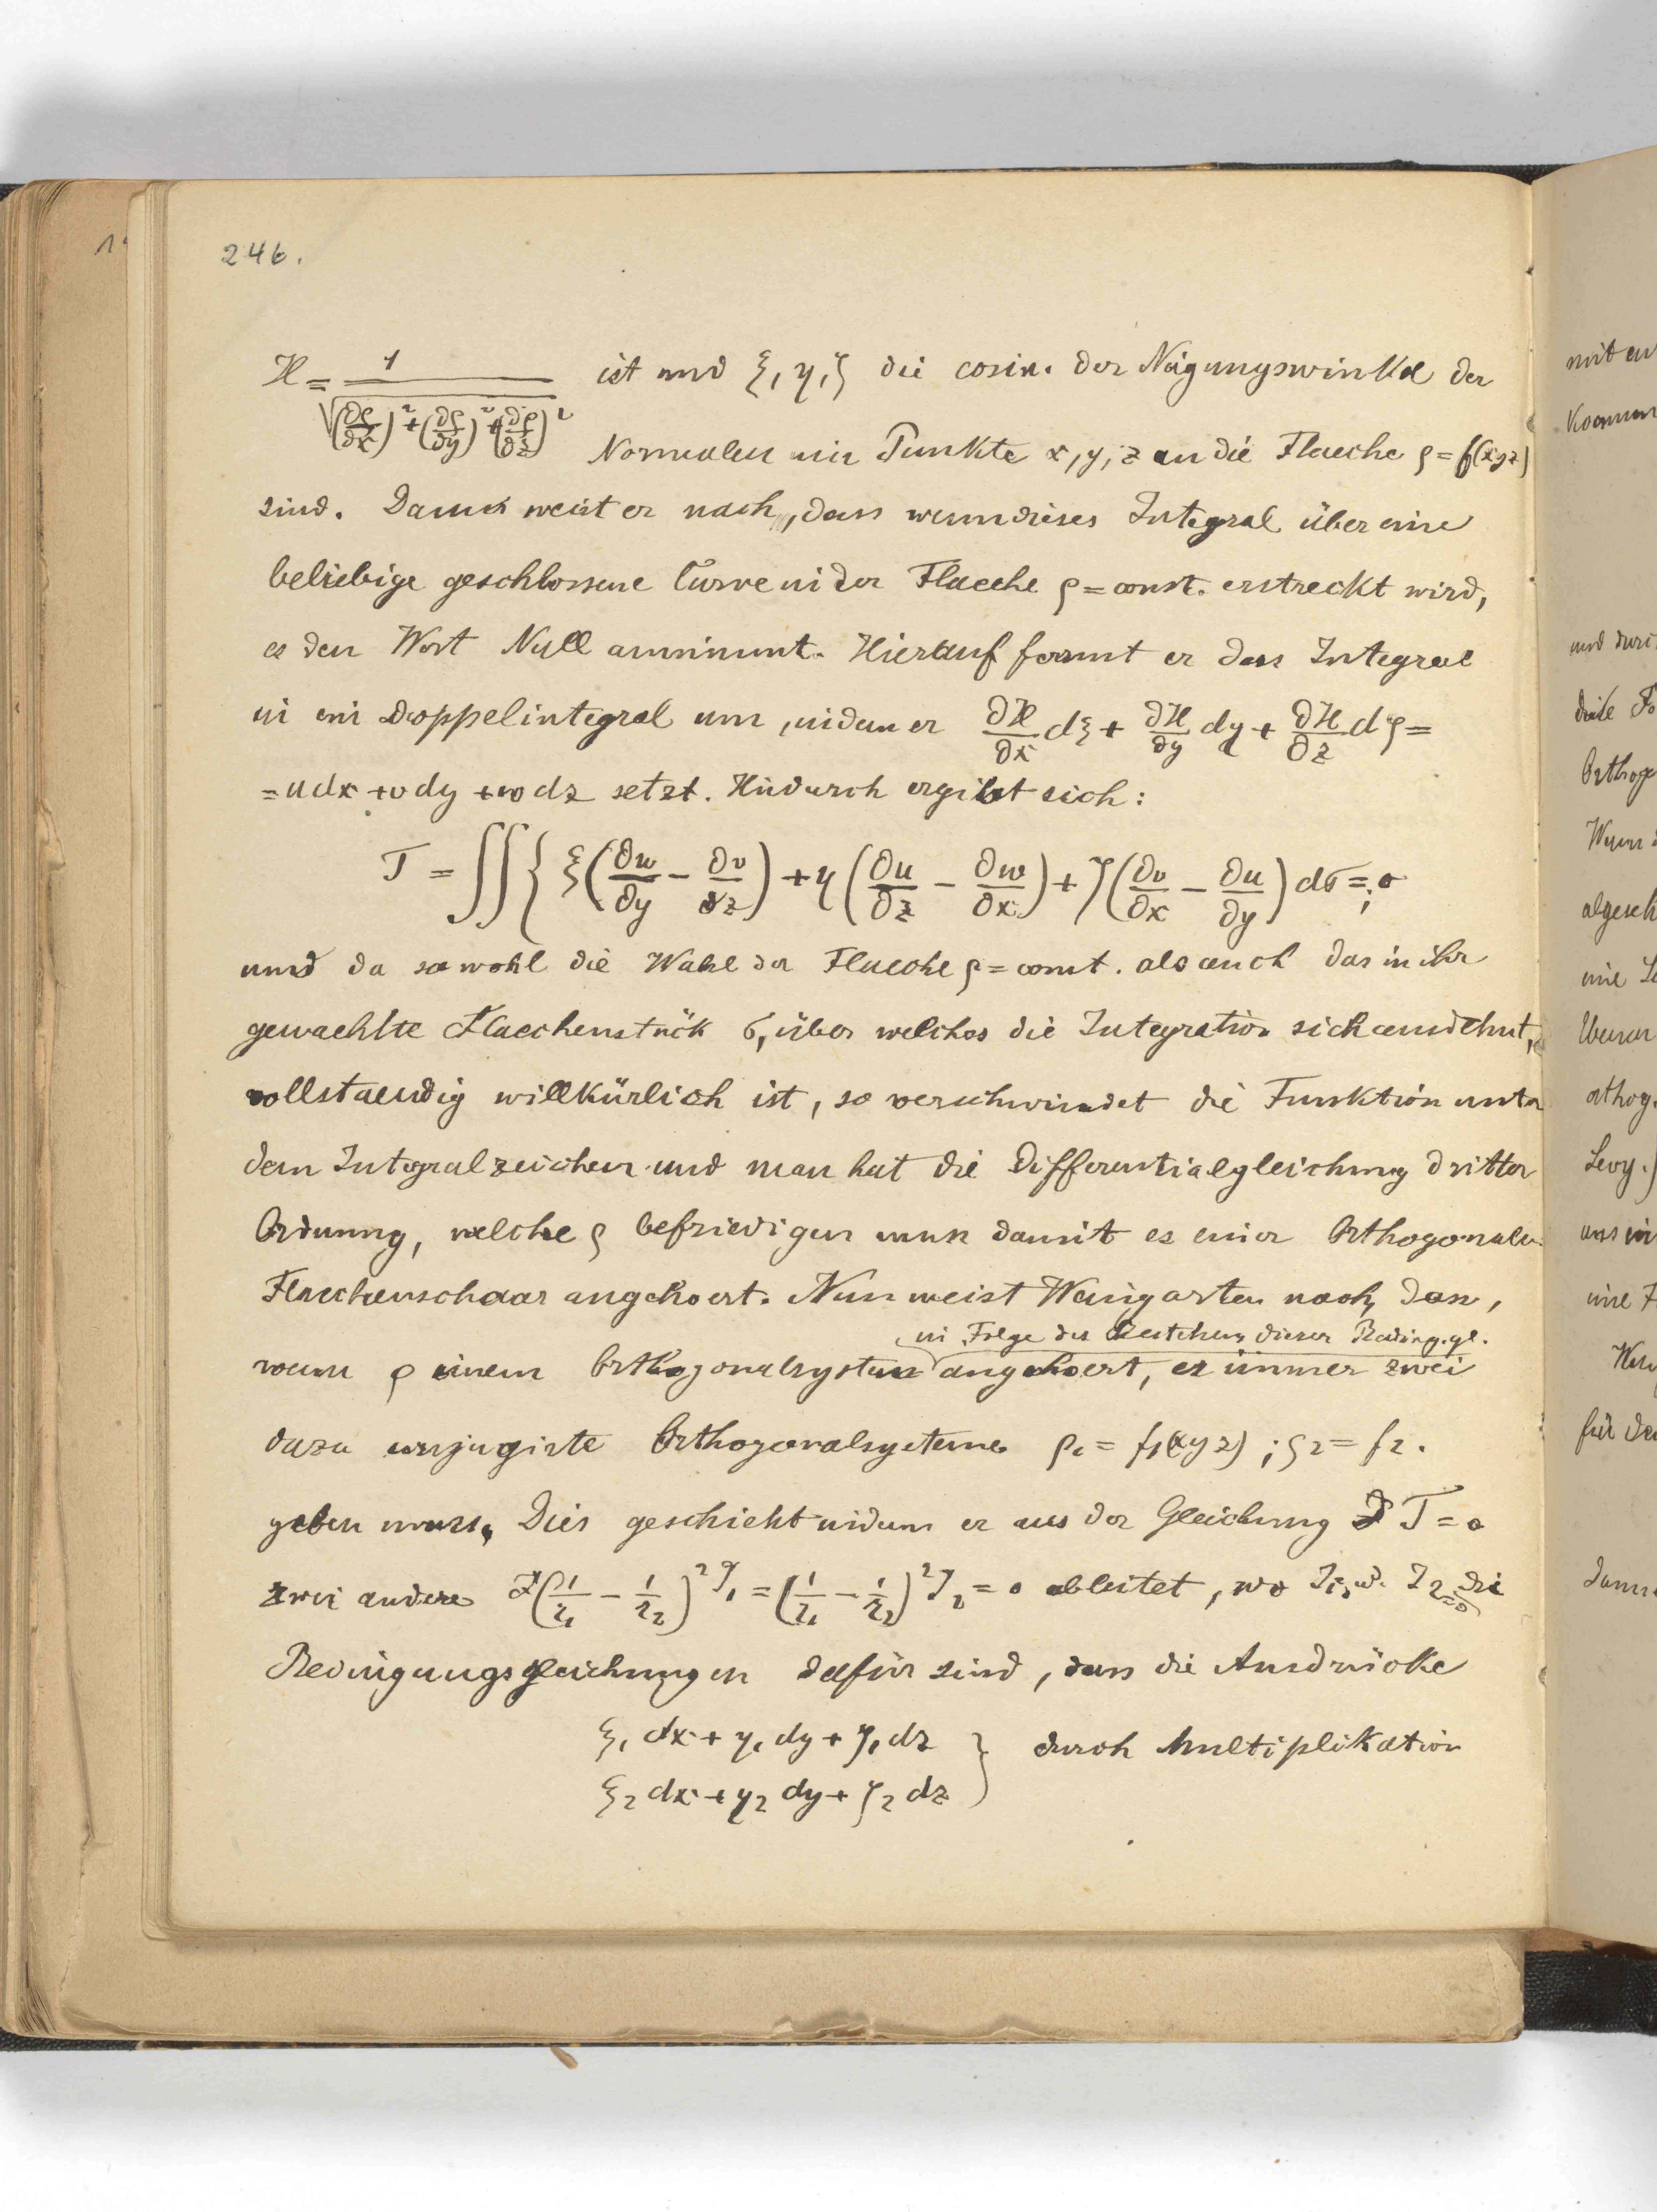 246.
H = 1/√((∂ρ/∂x)² + (∂ρ/∂y)² + (∂ρ/∂z)²) ist und ξ, η, ζ die cosin. der Neigungswinkel der
Normalen im Punkte x, y, z an die Flaeche ρ = f(xyz)
sind. Darauf weist er nach, dass wenn dieses Integral über eine
beliebige geschlossene Curve in der Flaeche ρ = const. erstreckt wird,
es den Wert Null annimmt. Hierauf formt er dass Integral
in ein Doppelintegral um, indem er ∂H/∂x dξ + ∂H/∂y dη + ∂H/∂z dζ =
= u dx + v dy + w dz setzt. Hiedurch ergibt sich:
J = ∫∫ { ξ(∂w/∂y − ∂v/∂z) + η(∂u/∂z − ∂w/∂x) + ζ(∂v/∂x − ∂u/∂y) dσ = 0;
und da sowohl die Wahl der Flaeche ρ = const. als auch das in ihr
gewaehlte Flaechenstück σ, über welches die Integration sich ausdehnt,
vollstaendig willkürlich ist, so verschwindet die Funktion unter
dem Integralzeichen und man hat die Differentialgleichung dritter
Ordnung, welche ρ befriedigen muss damit es einer Orthogonalen
Flaechenschaar angehoert. Nun weist Weingarten nach, dass,
in Folge des Bestehens dieser Beding.gl.
wenn ρ einem Orthogonalsystem angehoert, es immer zwei
dazu conjugirte Orthogonalsysteme ρ₁ = f₁(xyz); ρ₂ = f₂.
geben muss. Dies geschieht indem er aus der Gleichung J = 0
zwei andere (1/r₁ − 1/r₂)² J₁ = (1/r₁ − 1/r₂)² J₂ = 0 ableitet, wo J₁ u. J₂ = 0 die
Bedingungsgleichungen dafür sind, dass die Ausdrücke
ξ₁ dx + η₁ dy + ζ₁ dz } durch Multiplikation
ξ₂ dx + η₂ dy + ζ₂ dz